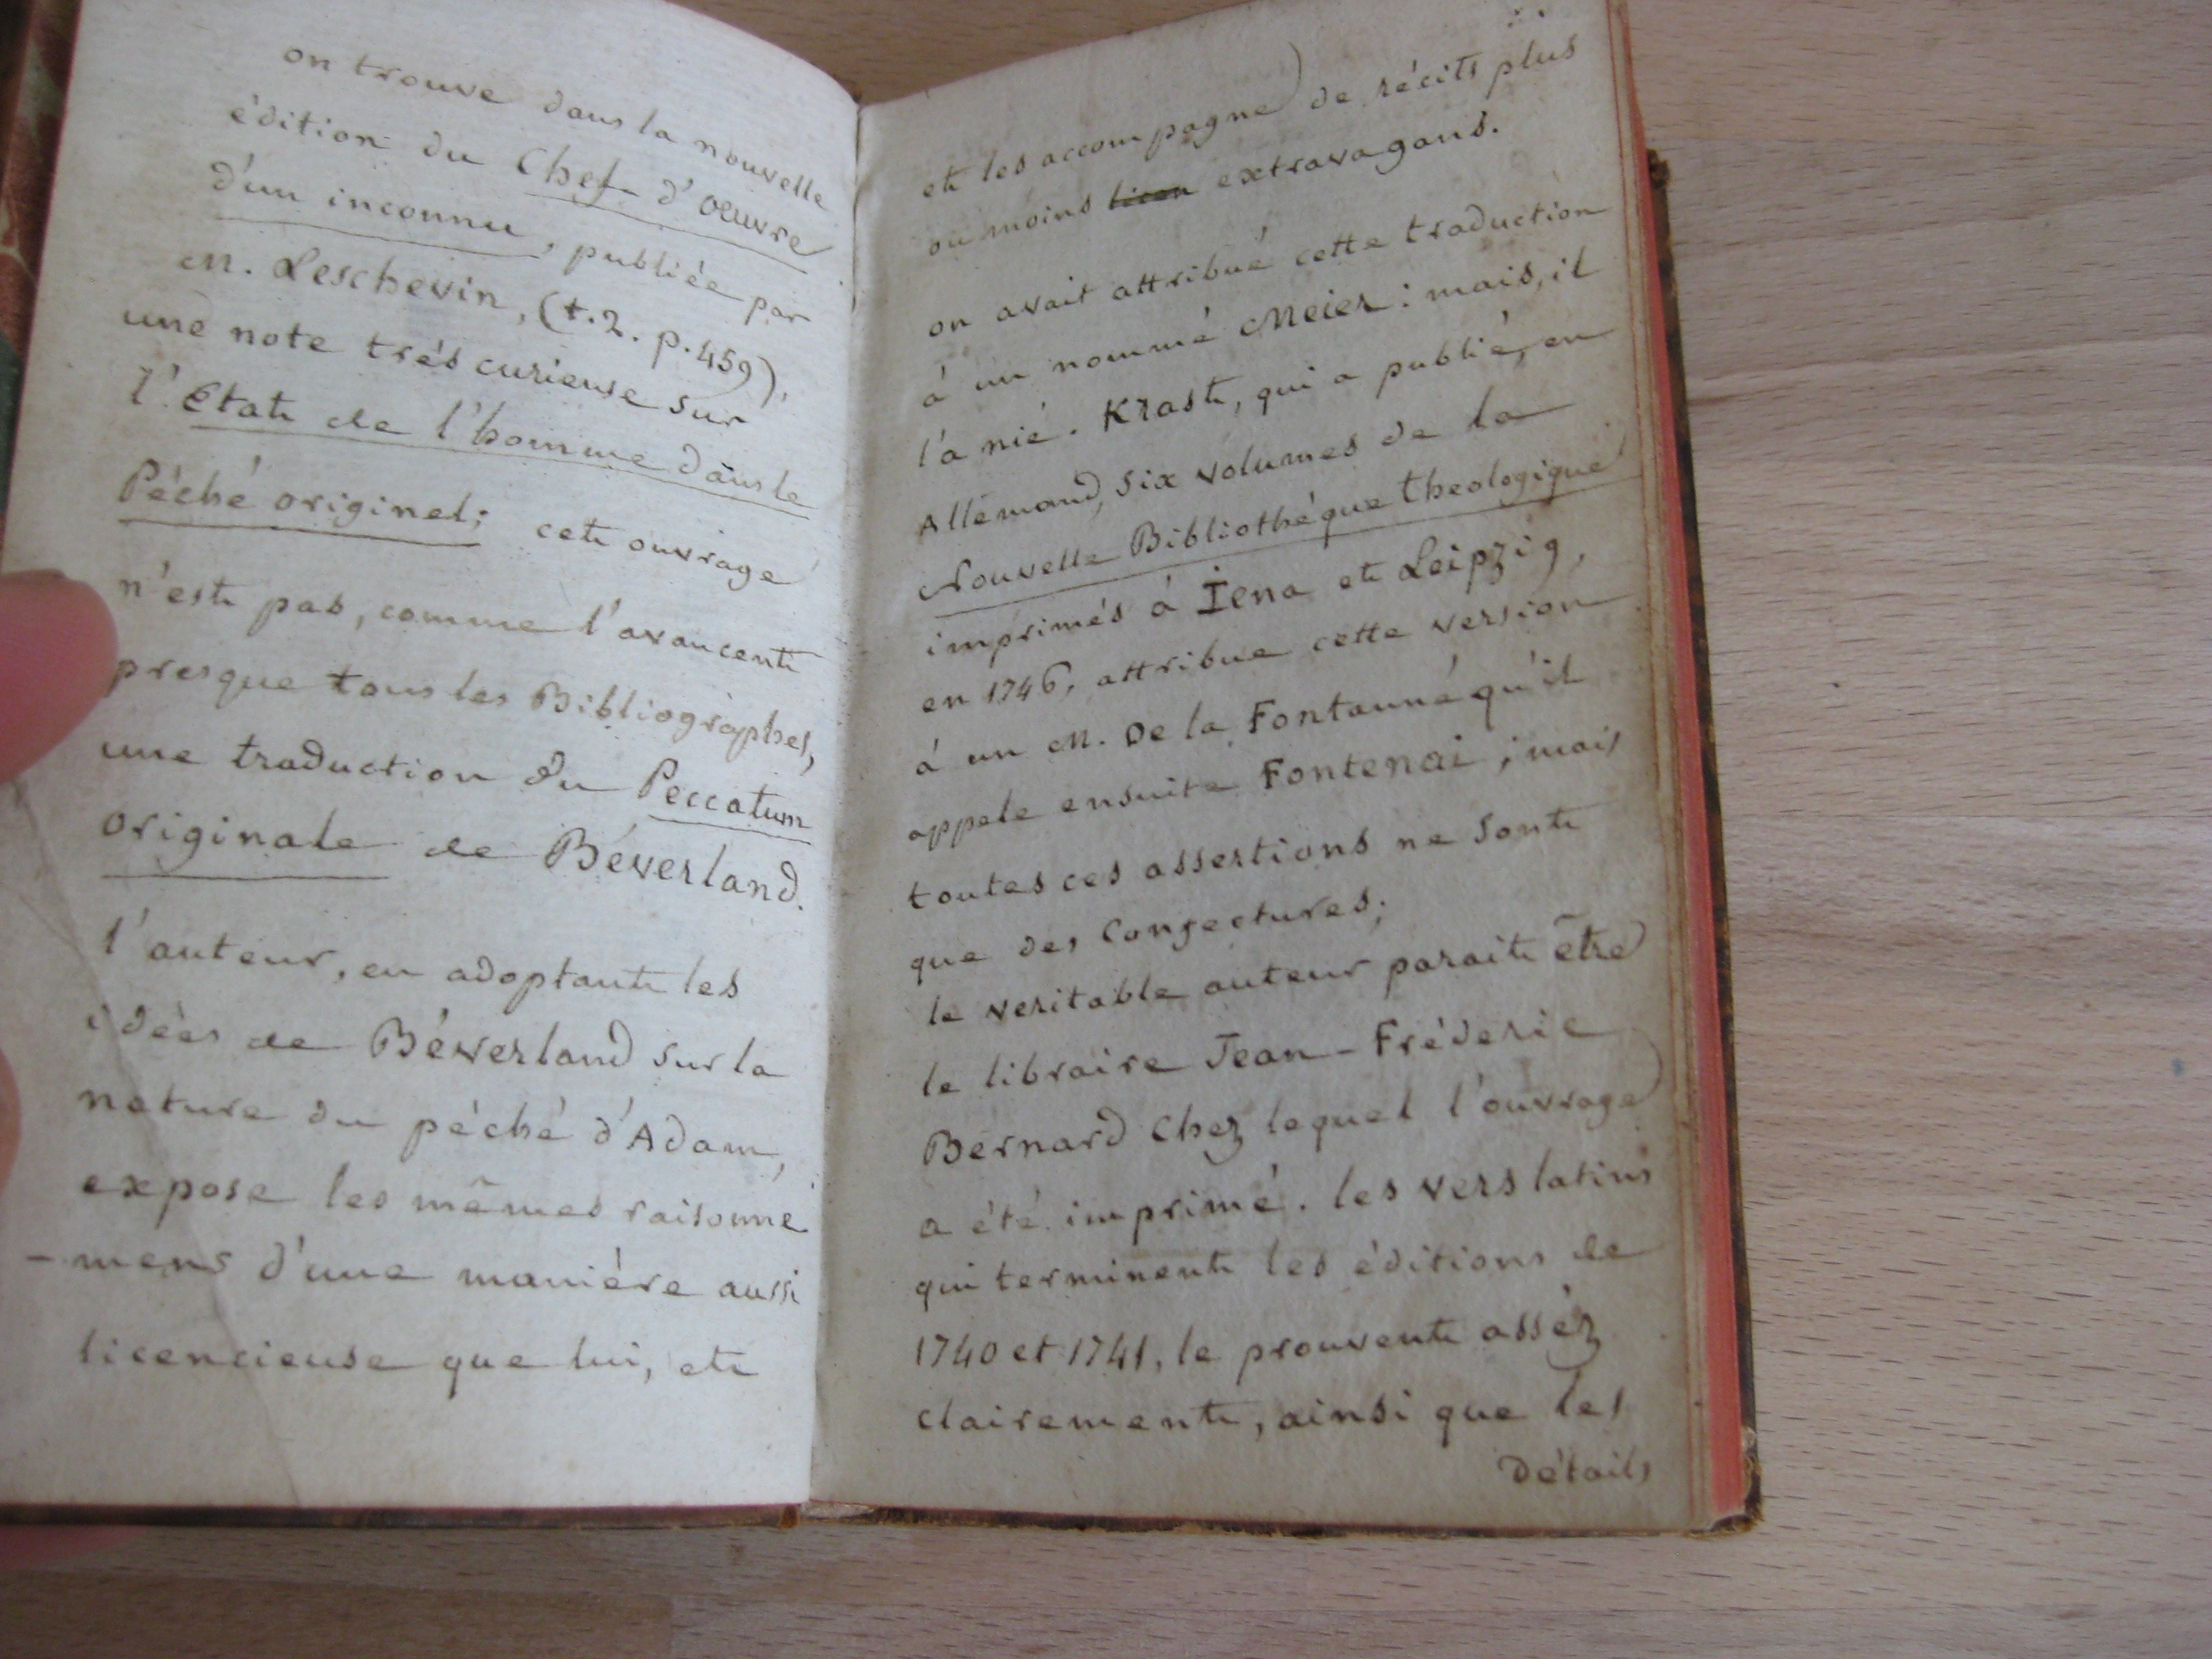 on trouve dans la nouvelle
édition du Chef d'oeuvre
d'un inconnu, publiée par
M. Leschevin, (t.2. p.459),
une note trés curieuse sur
l'Etat de l'homme dans le
Péché originel; cet ouvrage
n'est pas, comme l'avancent
presque tous les Bibliographes,
une traduction du Peccatum
originale de Béverland.
l'auteur, en adoptant les
idées de Béverland sur la
nature du péché d'Adam,
expose les mêmes raisonné
-mens d'une maniére aussi
licencieuse que lui, et
et les accompagne de récits plus
ou moins extravagans.
on avait attribué cette traduction
á un nommé Meier : mais, il
l'a nié. Krast, qui a publié, en
Allemand, six volumes de la
Nouvelle Bibliothéque theologique
imprimés á Iena et Leipzig,
en 1746, attribue cette version
á un M. De la Fontanné qu'il
appele ensuite Fontenai ; mais
toutes ces assertions ne sont
que des Conjectures;
le veritable auteur parait être
le libraire Jean-Fréderic
Bernard Chez lequel l'ouvrage
a été imprimé. les vers latins
qui terminent les éditions de
1740 et 1741, le prouvent asséz
clairement, ainsi que les
détails